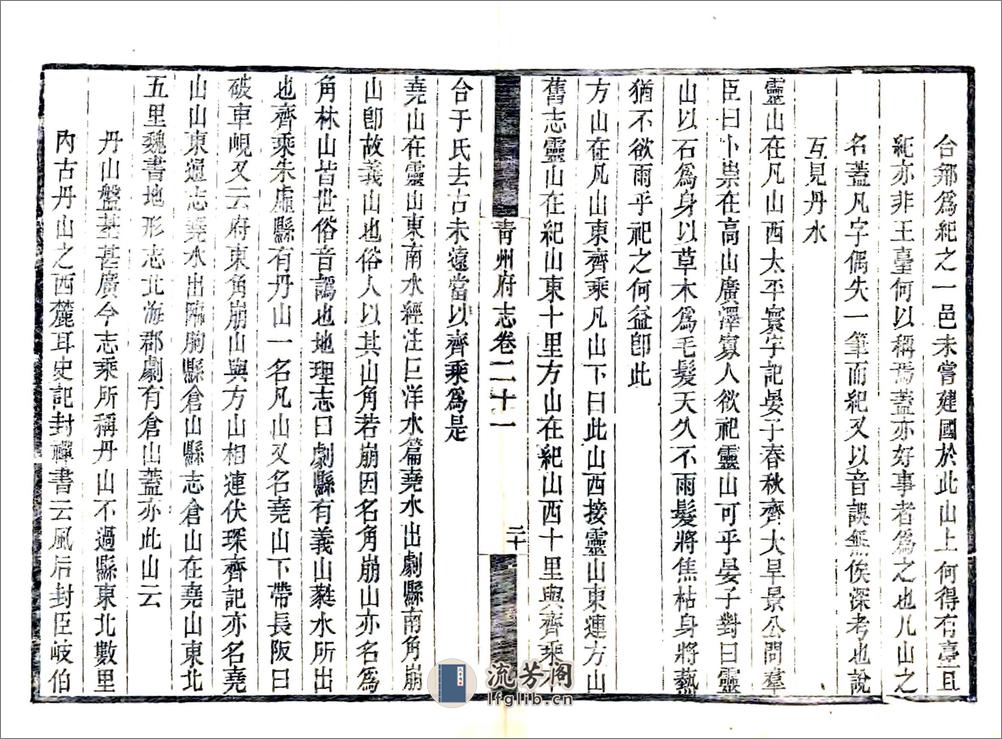 合鄣爲紀之一邑未嘗建國於此山上何得有臺且
紀亦非王臺何以稱焉蓋亦好事者爲之也凡山之
名蓋凡字偶失一筆而紀又以音誤無俟深考也說
互見丹水
靈山在凡山西太平寰宇記晏子春秋齊大旱景公問羣
臣曰卜祟在高山廣澤寡人欲祀靈山可乎晏子對曰靈
山以石爲身以草木爲毛髮天久不雨髮將焦枯身將熱
猶不欲雨乎祀之何益卽此
方山在凡山東齊乘凡山下曰此山西接靈山東連方山
舊志靈山在紀山東十里方山在紀山西十里與齊乘不
合于氏去古未遠當以齊乘爲是
青州府志卷二十一
二十
堯山在靈山東南水經注巨洋水篇堯水出劇縣南角崩
山卽故義山也俗人以其山角若崩因名角崩山亦名爲
角林山皆世俗音譌也地理志曰劇縣有義山蕤水所出
也齊乘朱虛縣有丹山一名凡山又名堯山下帶長阪曰
破車峴又云府東角崩山與方山相連伏琛齊記亦名堯
山山東通志堯水出臨朐縣倉山縣志倉山在堯山東北
五里魏書地形志北海郡劇有倉山蓋亦此山云
丹山盤基甚廣今志乘所稱丹山不過縣東北數里
內古丹山之西麓耳史記封禪書云風后封臣岐伯
流芳閣
lfglib.cn